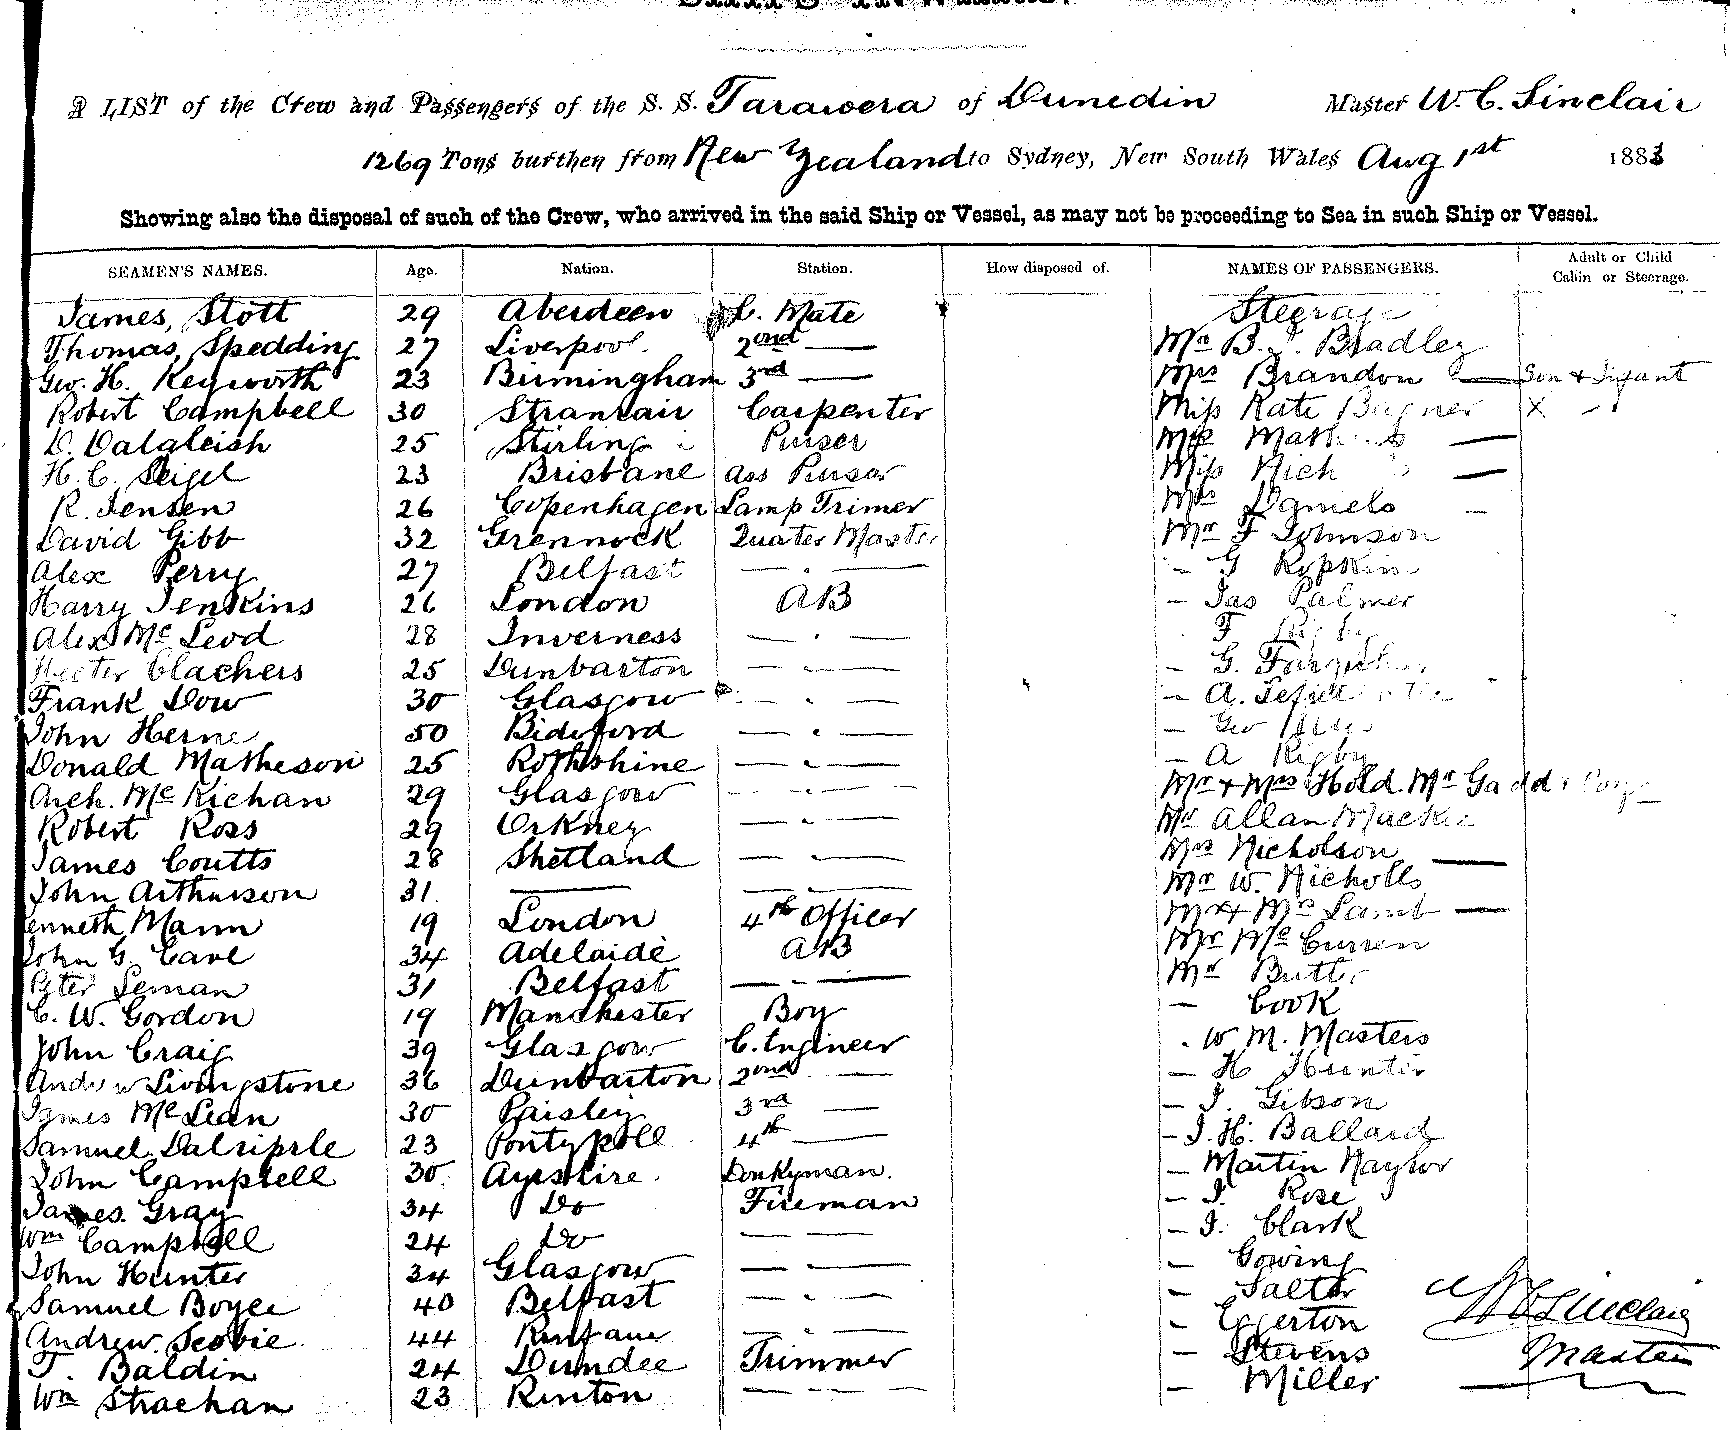 A LIST of the Crew and Passengers of the S. S. Tarawera of Dunedin Master W. C. Sinclair
1269 Tons burthen from New Zealand to Sydney, New South Wales Aug 1st 1883
Showing also the disposal of such of the Crew, who arrived in the said Ship or Vessel, as may not be proceeding to Sea in such Ship or Vessel.
SEAMEN'S NAMES. Age. Nation. Station. How disposed of. NAMES OF PASSENGERS. Adult or Child Cabin or Steerage.
James, Stott 29 Aberdeen C. Mate Steerage
Thomas, Spedding 27 Liverpool. 2nd — Mr B. Bradley
Geo. H. Keyworth 23 Birmingham 3rd — Mrs Brandon — Son + Infant
Robert Campbell 30 Stranrair Carpenter Miss Kate X
D. Dalgleish 25 Stirling Purser —
H. C. Seigel 23 Brisbane Ass Purser Miss —
R. Jensen 26 Copenhagen Lamp Trimer Mrs Daniels —
David Gibb 32 Grennock Quater Master Mr F Johnson
Alex Perry 27 Belfast — . — — G Ropkin
Harry Jenkins 26 London AB — Jas Palmer
Alex Mc Leod 28 Inverness — . — F
Hecter Clachers 25 Dunbarton — . — — G.
Frank Dow 30 Glasgow — . — — A.
John Herne 50 Bideford — . — — Geo
Donald Matheson 25 Rothshine — . — — A Rigby
Arch. Mc Kichan 29 Glasgow — . — Mr + Mrs Hold. Mr Gadd
Robert Ross 29 Orkney — . — Mr Allan Mackie
James Coutts 28 Shetland — . — Mrs Nicholson —
John Arthurson 31. — — . — Mr W. Nicholls
enneth Mann 19 London 4th Officer Mr + Mrs Lamb —
John G. Carl 34 Adelaide AB Mr Mc Curren
Peter Leman 31 Belfast — . — Mr Butler
C. W. Gordon 19 Manchester Boy — Cook
John Craig 39 Glasgow C. Engineer . W M. Masters
Andrew Livingstone 36 Dunbarton 2nd — — H Hunter
James Mc Lean 30 Paisley 3rd — — J. Gibson
Samuel Dalriprle 23 Pontypoll 4th — — J. H. Ballard
John Campbell 30. Ayrshire. Donkyman. — Martin Naylor
James Gray 34 Do Fireman — J. Rose
Wm Campbell 24 Do — — — J. Clark
John Hunter 34 Glasgow — . — — Gowing
Samuel Boyce 40 Belfast — . — — Salter W C Sinclair
Andrew. Scobie. 44 — . — — Egerton
T. Baldin 24 Dundee Trimmer — Stevens Master
Wm Strachan 23 Renton — — — Miller